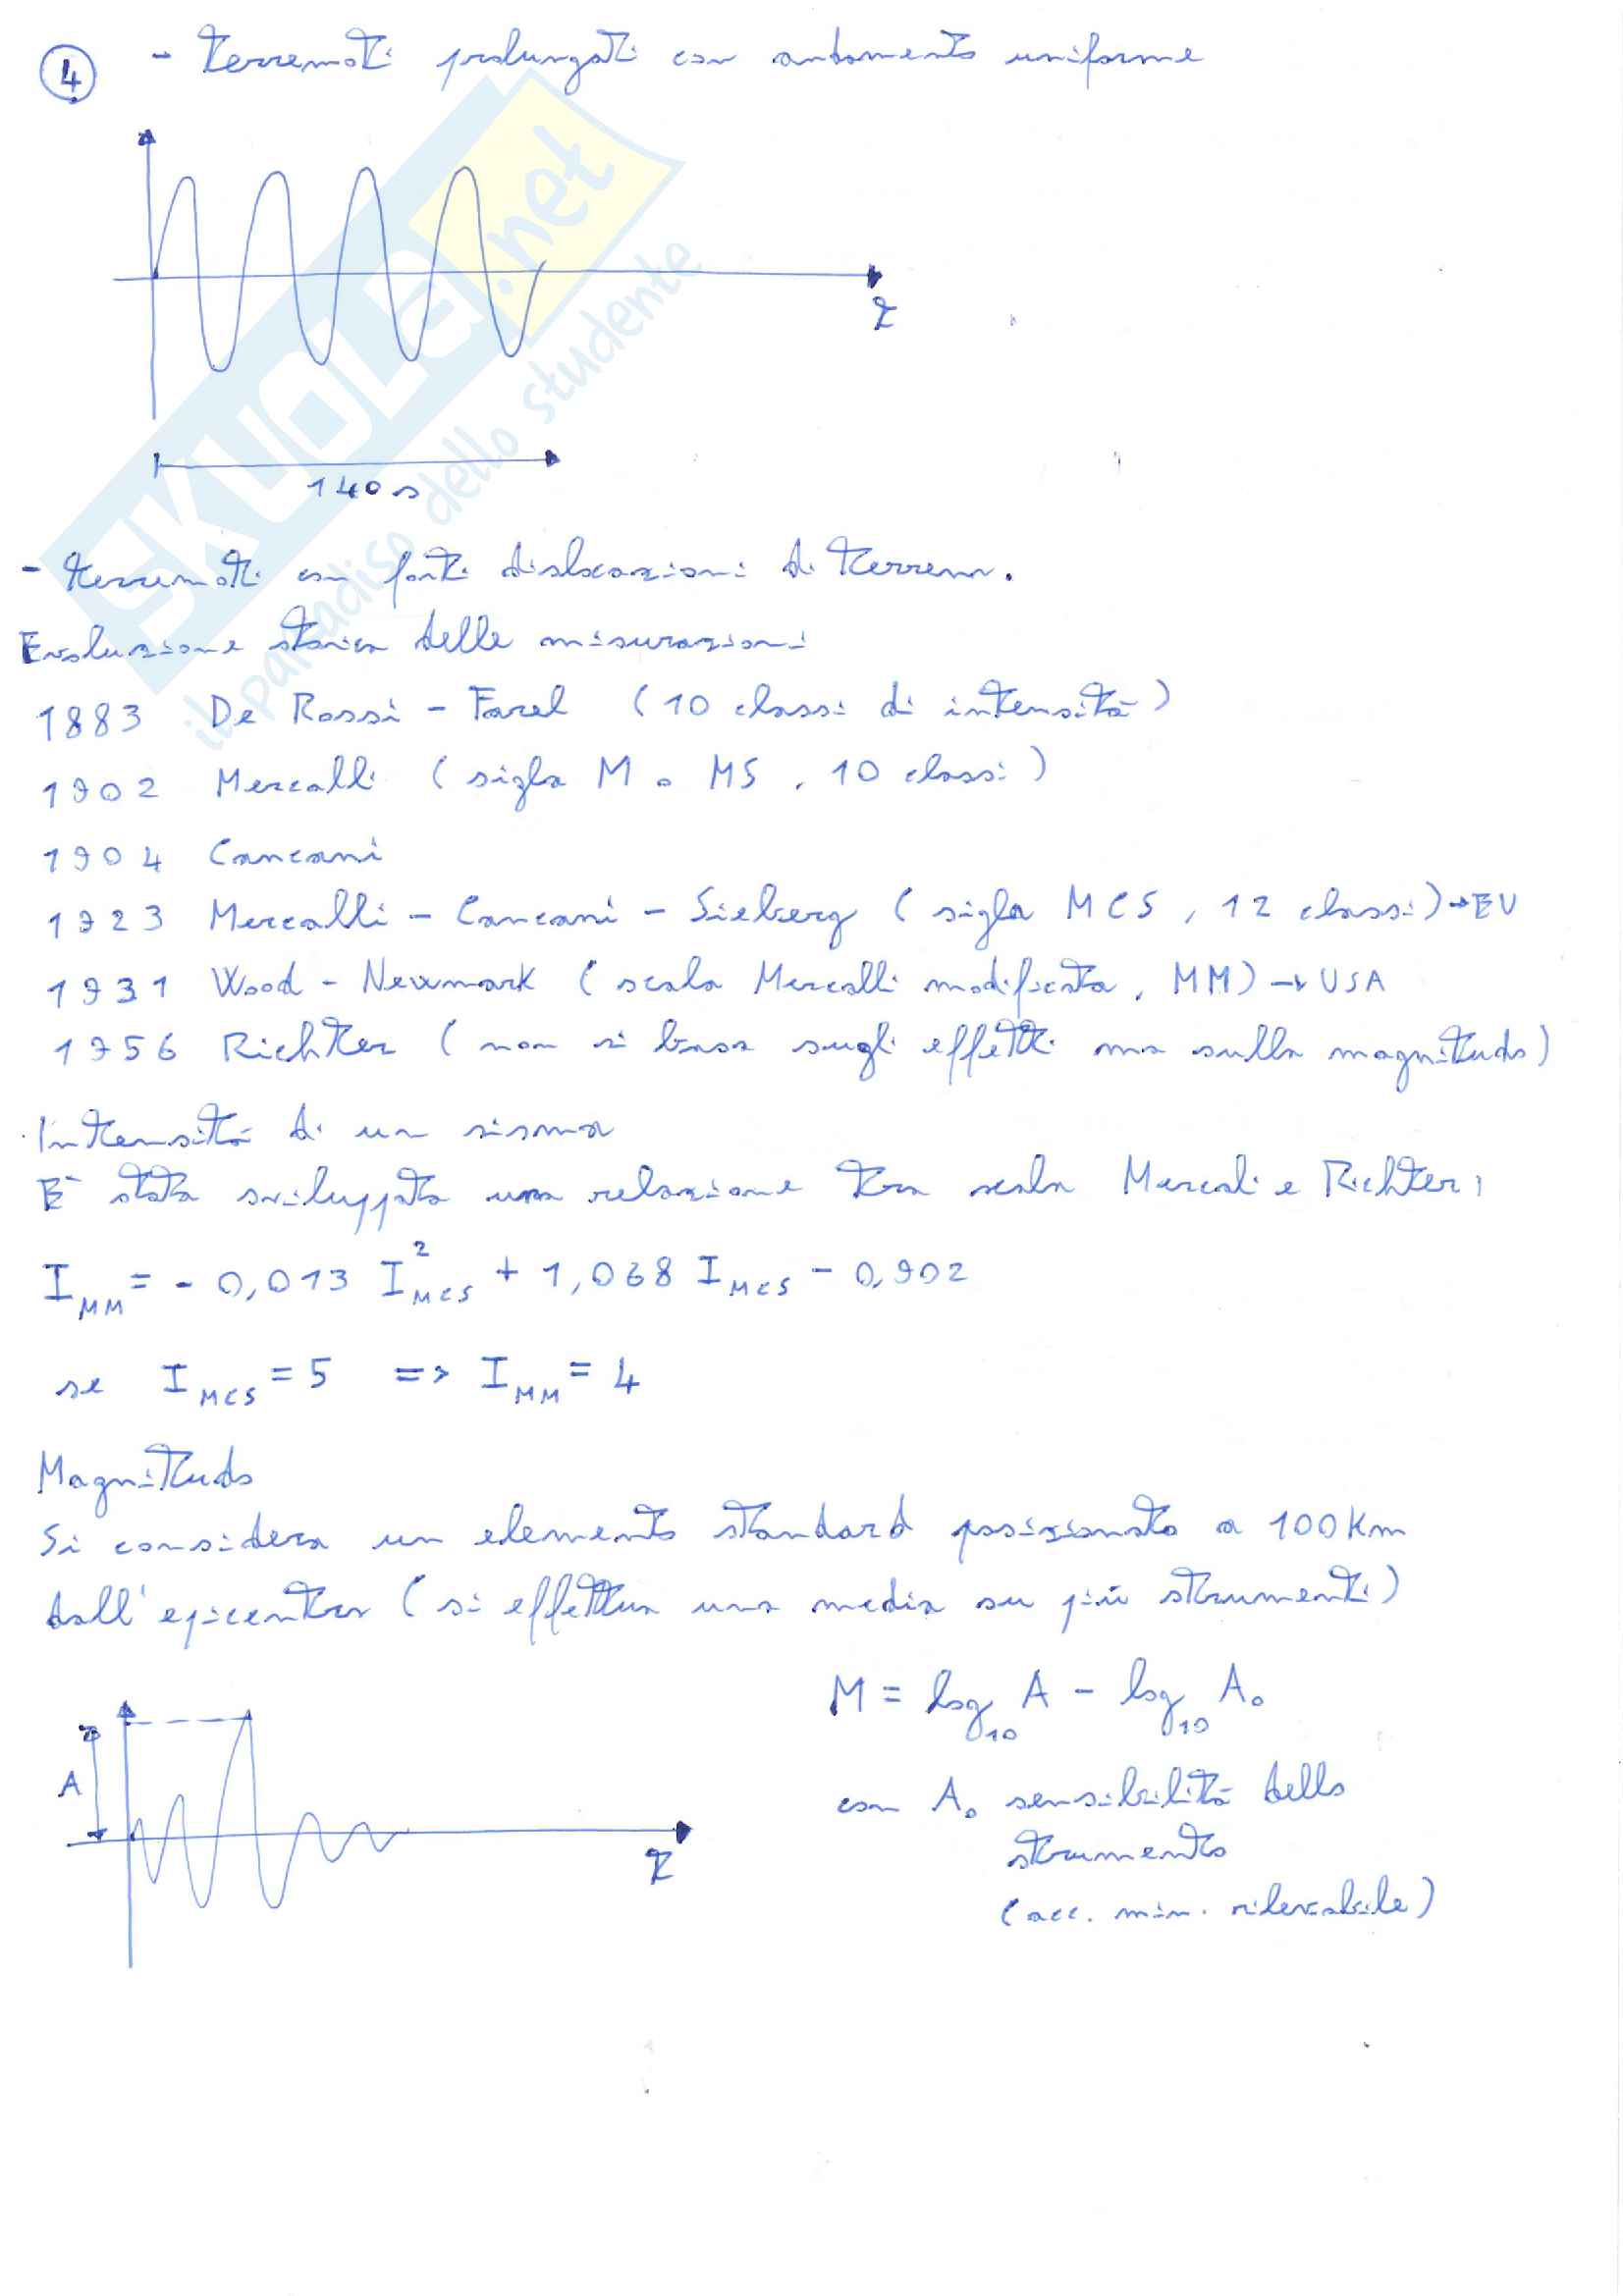 4 - Terremoti prolungati con andamento uniforme
t
140 s
- terremoti con forti dislocazioni di terreno.
Evoluzione storica delle misurazioni
1883 De Rossi - Farel (10 classi di intensità)
1902 Mercalli (sigla M o MS, 10 classi)
1904 Cancani
1923 Mercalli - Cancani - Sieberg (sigla MCS, 12 classi) → EU
1931 Wood - Newmark (scala Mercalli modificata, MM) → USA
1956 Richter (non si basa sugli effetti ma sulla magnitudo)
Intensità di un sisma
È stata sviluppata una relazione tra scala Mercali e Richter:
I_MM = - 0,013 I²_MCS + 1,068 I_MCS - 0,902
se I_MCS = 5 => I_MM = 4
Magnitudo
Si considera un elemento standard posizionato a 100 Km
dall'epicentro (si effettua una media su più strumenti)
M = log₁₀ A - log₁₀ A₀
A
t
con A₀ sensibilità dello
strumento
(acc. min. rilevabile)
SKUOLa.net
il paradiso dello studente